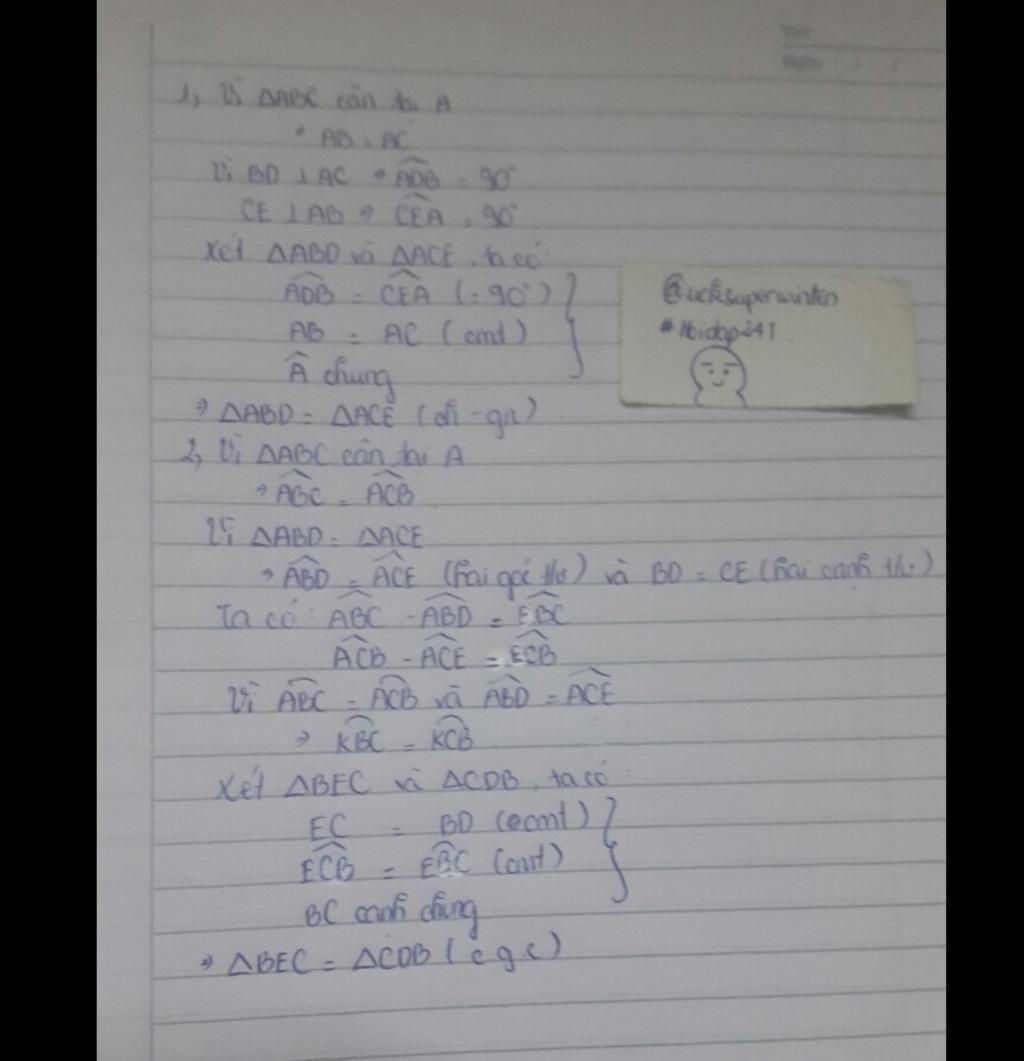 1, Vì ΔABC cân tại A
⇒ AB = AC
Vì BD ⊥ AC ⇒ \widehat{ADB} = 90°
CE ⊥ AB ⇒ \widehat{CEA} = 90°
Xét ΔABD và ΔACE, ta có:
\widehat{ADB} = \widehat{CEA} (= 90°)
AB = AC (cmt)
\widehat{A} chung
⇒ ΔABD = ΔACE (ch - gn).
@ucksuperwinten
2, Vì ΔABC cân tại A
⇒ \widehat{ABC} = \widehat{ACB}
Vì ΔABD = ΔACE
⇒ \widehat{ABD} = \widehat{ACE} (hai góc t/ư) và BD = CE (hai cạnh t/ư)
Ta có: \widehat{ABC} - \widehat{ABD} = \widehat{EBC}
\widehat{ACB} - \widehat{ACE} = \widehat{ECB}
Vì \widehat{ABC} = \widehat{ACB} và \widehat{ABD} = \widehat{ACE}
⇒ \widehat{KBC} = \widehat{KCB}
Xét ΔBEC và ΔCDB, ta có:
EC = BD (cmt)
\widehat{ECB} = \widehat{EBC} (cmt)
BC cạnh chung
⇒ ΔBEC = ΔCDB (c.g.c)